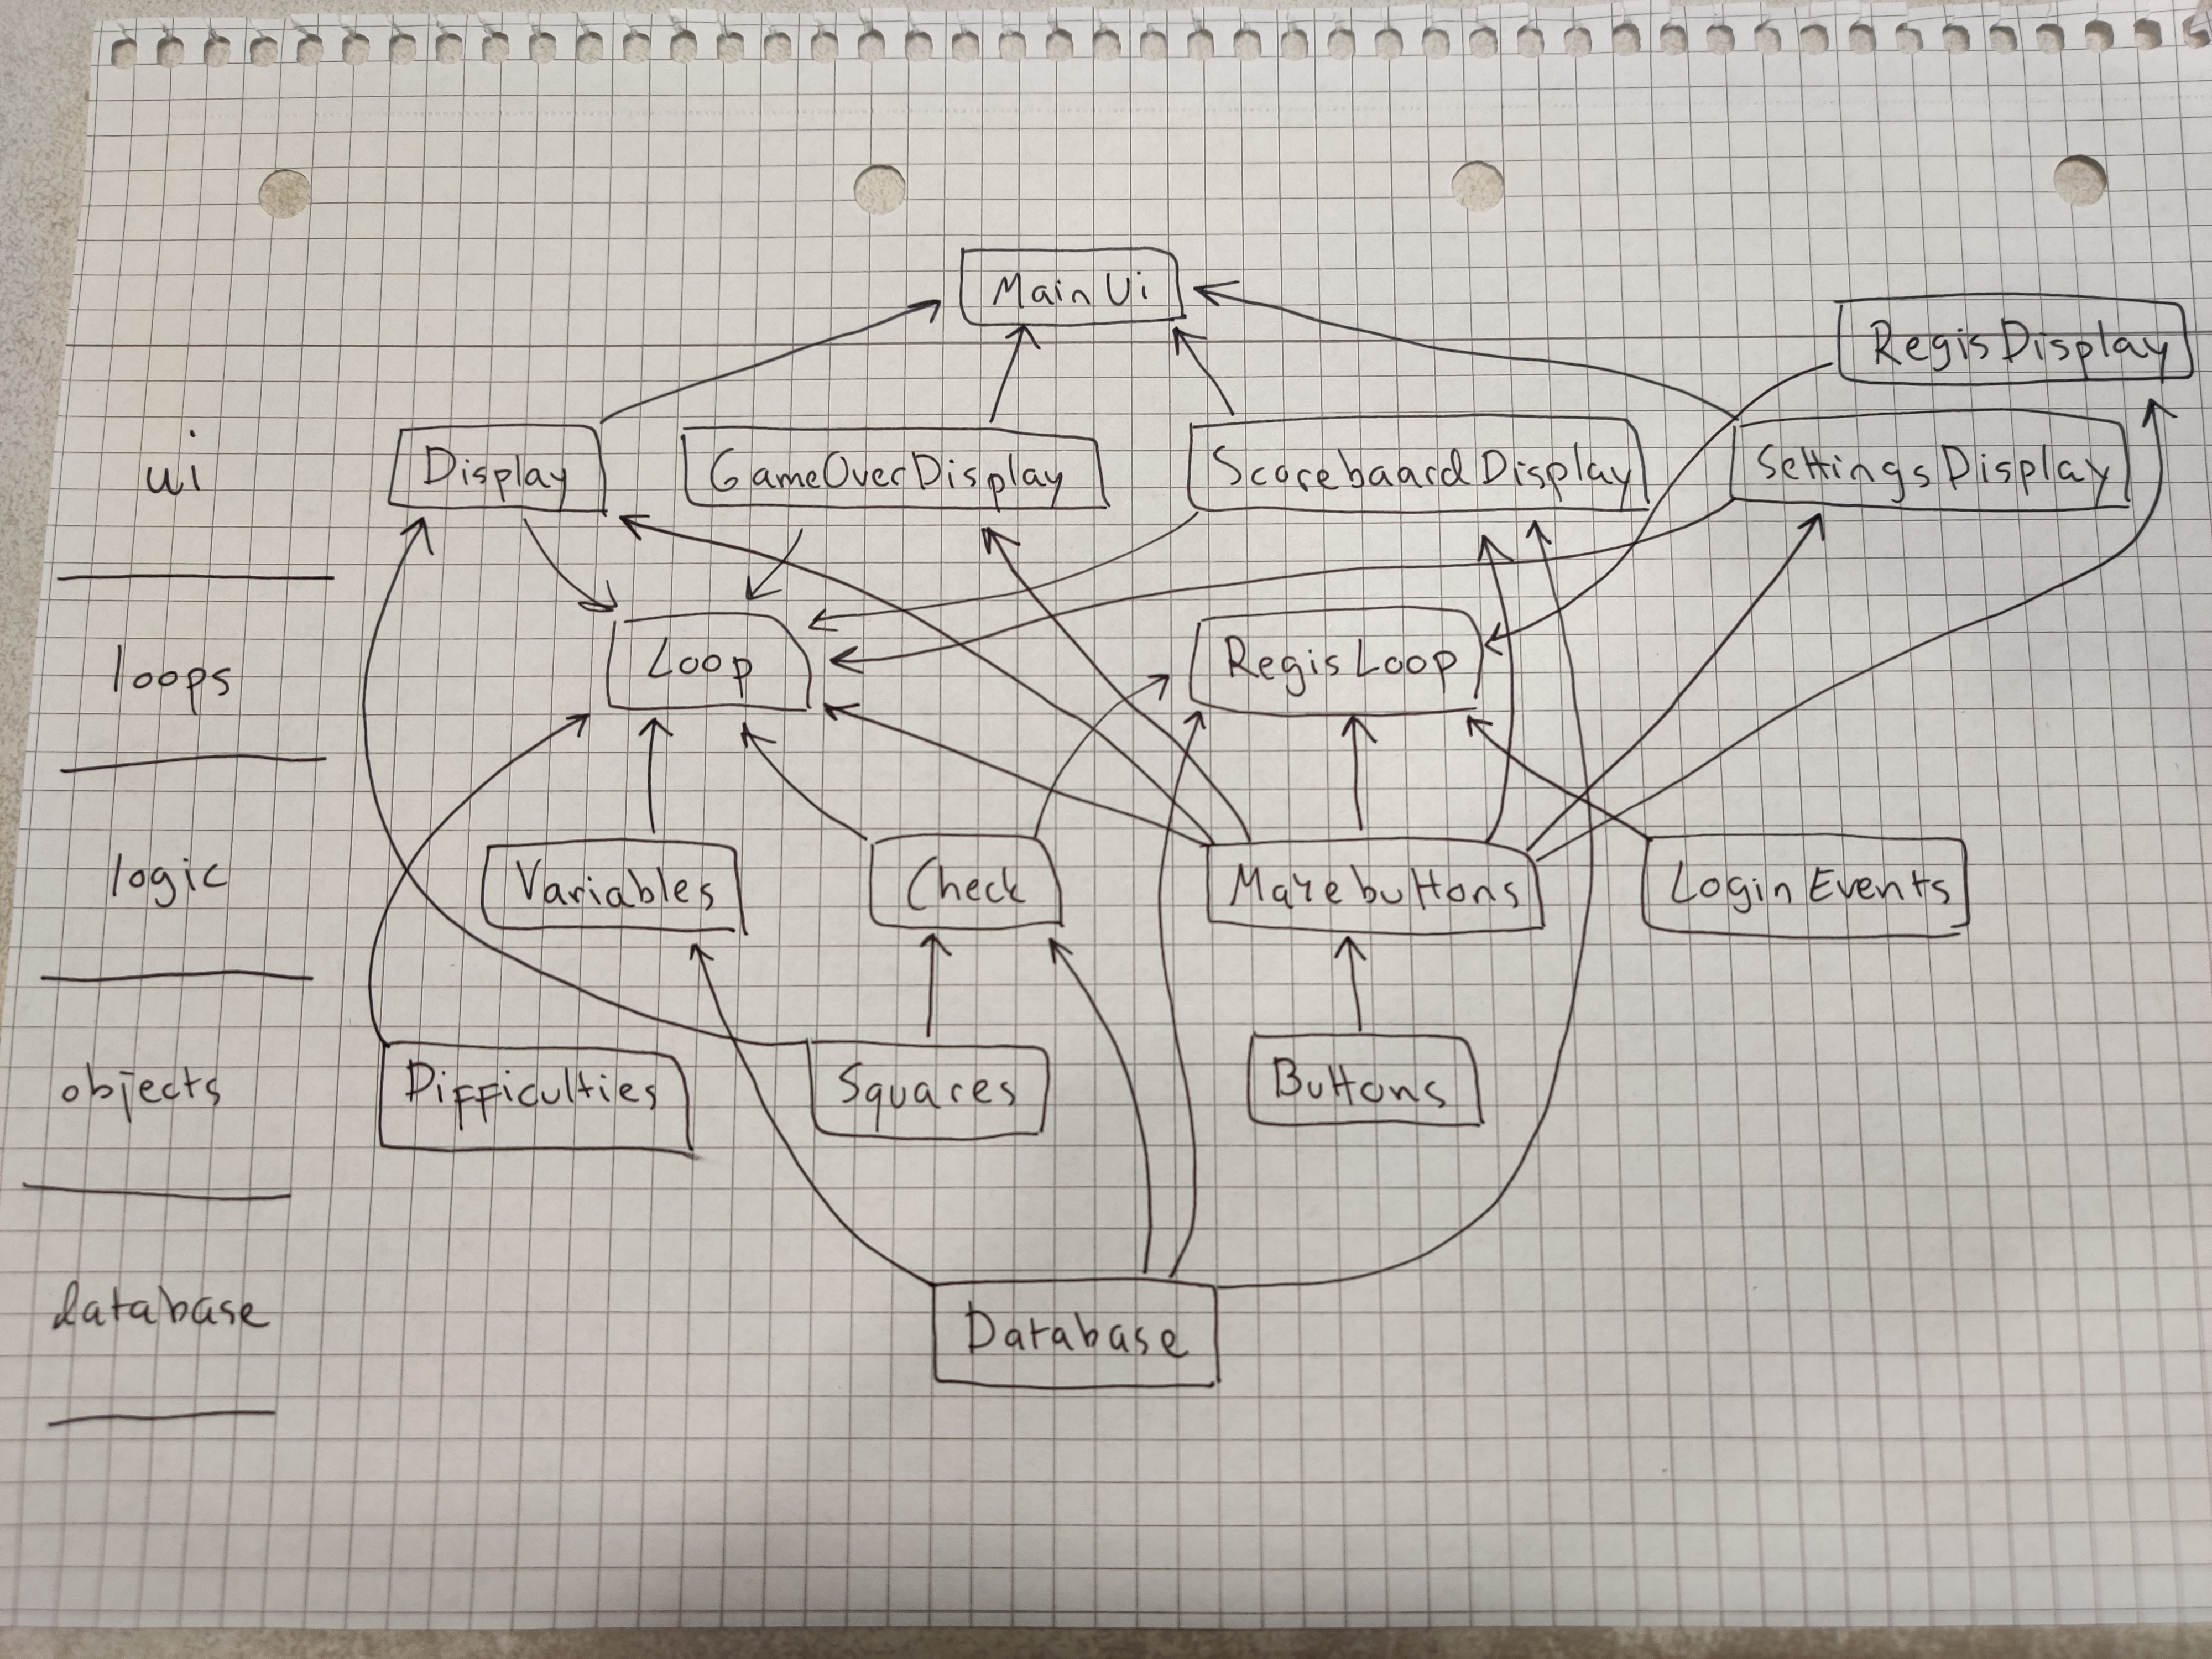 Main Ui
RegisDisplay
ui
Display
GameOverDisplay
ScorebaardDisplay
SettingsDisplay
loops
Loop
RegisLoop
logic
Variables
Check
Makebuttons
LoginEvents
objects
Difficulties
Squares
Buttons
database
Database